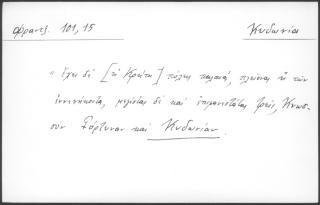 Φραντζ. 101, 15
Κυδωνία
"Ἔχει δὲ [ἡ Κρήτη] πόλεις παλαιὰς, πλείους ἢ τῶν
ἐννενήκοντα, μεγίστας δὲ καὶ ἐπιφανεστάτας τρεῖς, Κνωσ-
σον Γόρτυναν καὶ Κυδωνίαν.